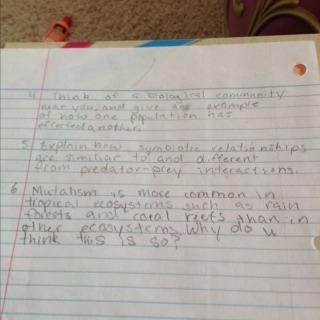 4. Think of a biological community
near you, and give one example
of how one population has
effected another.
5. Explain how symbiotic relationships
are similiar to and different
from predator-prey interactions.
6 Mutalism is more common in
tropical ecosystems such as rain
forests and coral reefs than in
other ecosystems. Why do u
think this is so?